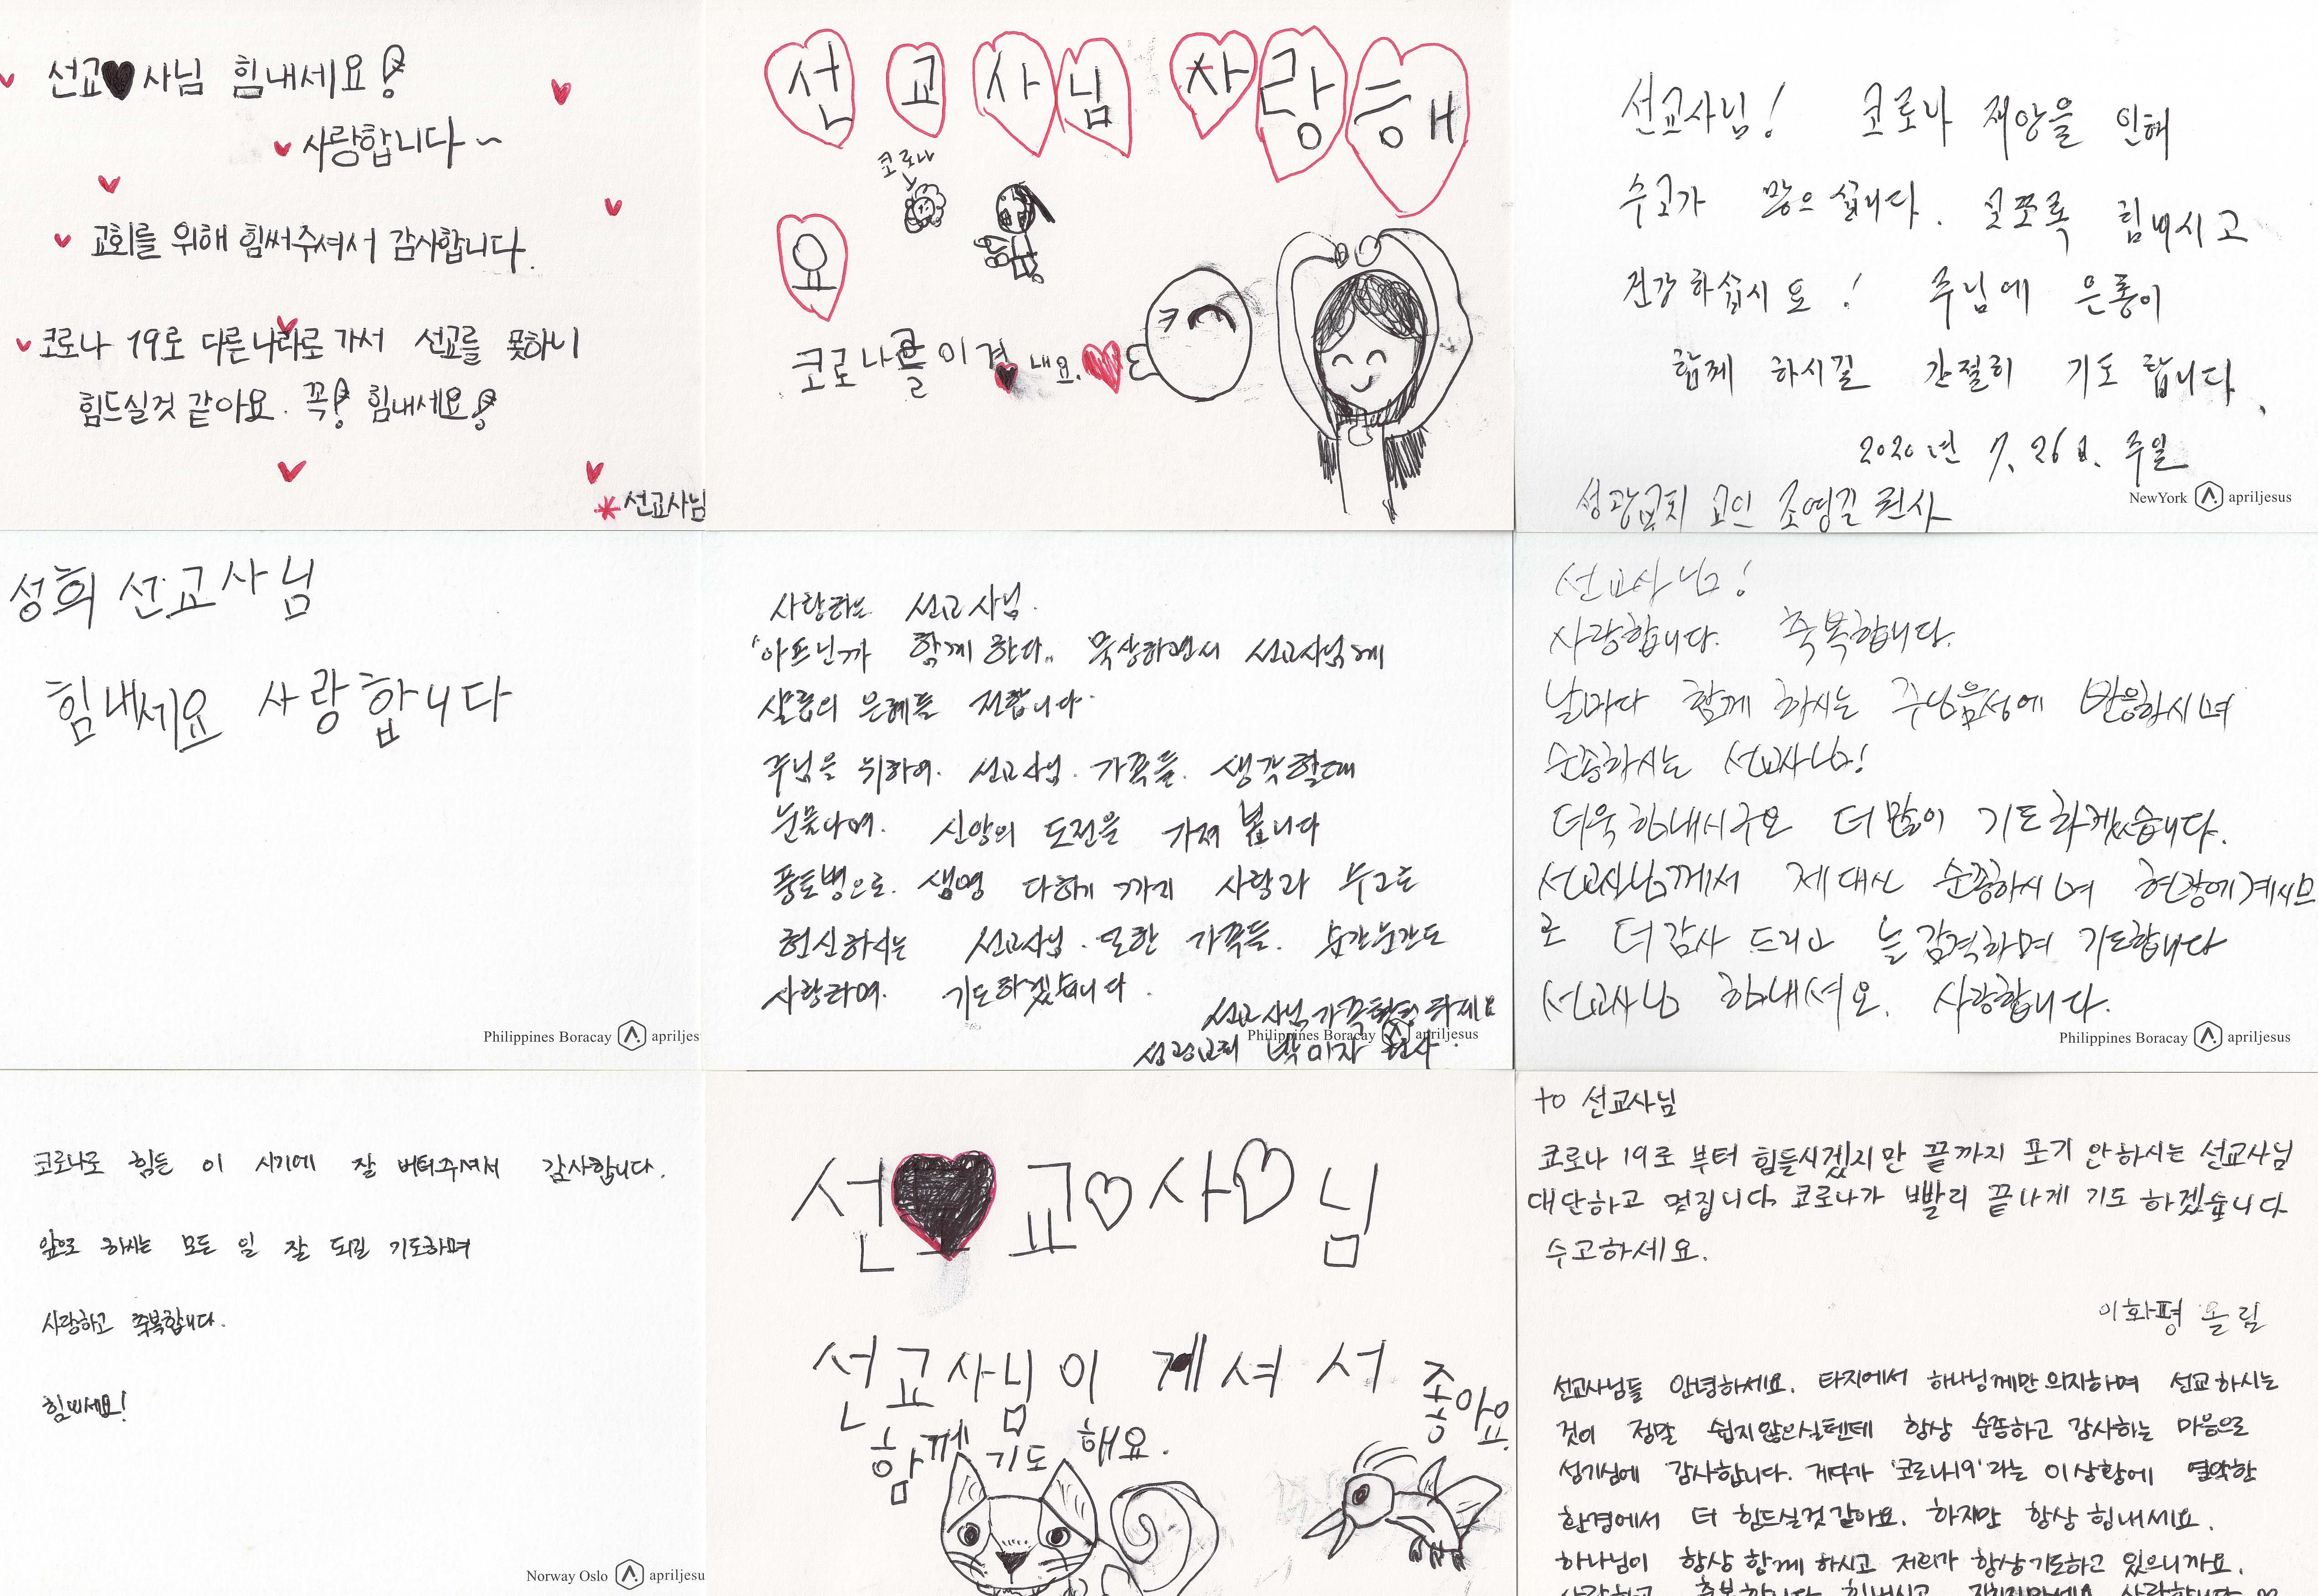 선교사님 힘내세요!
사랑합니다~
교회를 위해 힘써주셔서 감사합니다.
코로나 19로 다른나라로 가서 선교를 못하니
힘드실것 같아요. 꼭! 힘내세요!
선교사님
선교사님 사랑해
요
코로나
코로나를 이겨내요.
선교사님! 코로나 재앙을 인해
수고가 많으십니다. 힘내시고
건강하십시요! 주님에 은총이
함께 하시길 간절히 기도 합니다.
2020년 7. 26일. 주일
성광교회 교인 조영길 권사
NewYork apriljesus
성희 선교사님
힘내세요 사랑합니다
Philippines Boracay apriljes
사랑하는 선교사님.
"아프니까 함께 한다" 묵상하면서 선교사님께
샬롬의 은혜를 전합니다.
주님을 위하여. 선교사님. 가족들. 생각할때
눈물나며. 신앙의 도전을 가져 봅니다
풍토병으로. 생명 다하기 까지 사랑과 수고로
헌신하시는 선교사님. 또한 가족들. 순간순간도
사랑하며. 기도하겠습니다.
선교사님 가족
Philippines Boracay apriljesus
성광교회 박미자 권사.
선교사님!
사랑합니다. 축복합니다.
날마다 함께 하시는 주님음성에 반응하시며
순종하시는 선교사님!
더욱 힘내시구요 더 많이 기도하겠습니다.
선교사님께서 제 대신 순종하시며 현장에 계시므
로 더 감사 드리고 늘 감격하며 기도합니다
선교사님 힘내셔요. 사랑합니다.
Philippines Boracay apriljesus
코로나로 힘든 이 시기에 잘 버텨주셔서 감사합니다.
앞으로 하시는 모든 일 잘 되길 기도하며
사랑하고 축복합니다.
힘내세요!
Norway Oslo apriljesu
선교사님
선교사님이 계셔서 좋아요.
함께 기도 해요.
to 선교사님
코로나 19로 부터 힘들시겠지만 끝까지 포기 안하시는 선교사님
대단하고 멋집니다. 코로나가 빨리 끝나게 기도 하겠습니다
수고하세요.
이화평 올림
선교사님들 안녕하세요. 타지에서 하나님께만 의지하며 선교하시는
것이 정말 쉽지않으실텐데 항상 순종하고 감사하는 마음으로
섬기심에 감사합니다. 게다가 '코로나19'라는 이상황에 열악한
환경에서 더 힘드실것같아요. 하지만 항상 힘내세요.
하나님이 항상 함께 하시고 저희가 항상기도하고 있으니까요.